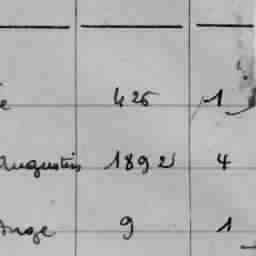 e 425 1
Augustin 1892 4
Ange 9 1